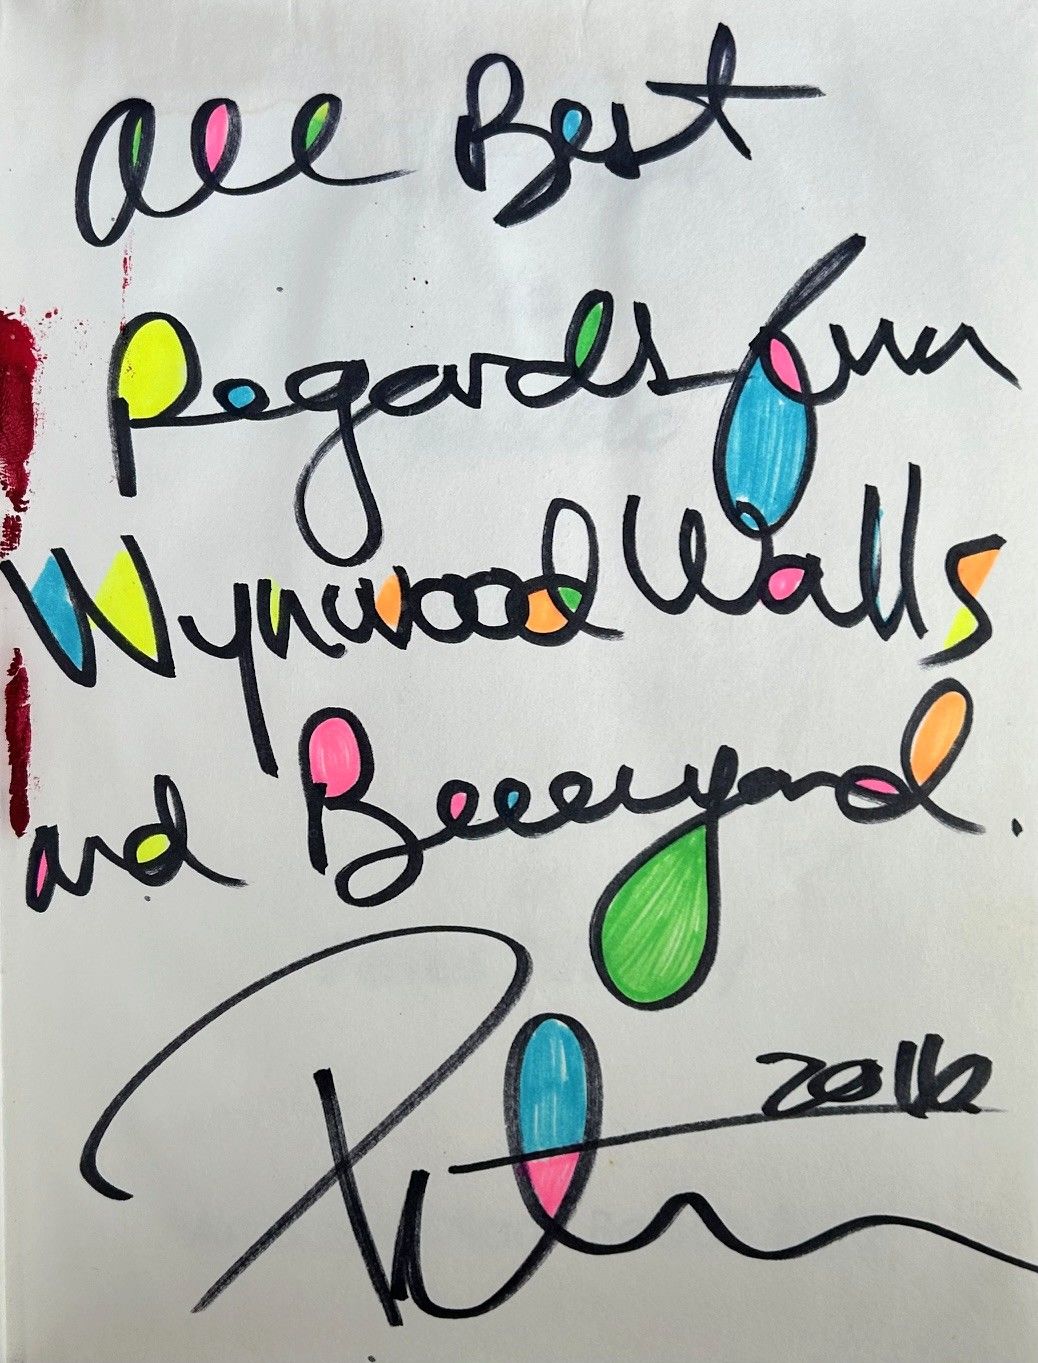 All Best
Regards from
Wynwood Walls
and Beeeyond.
2016